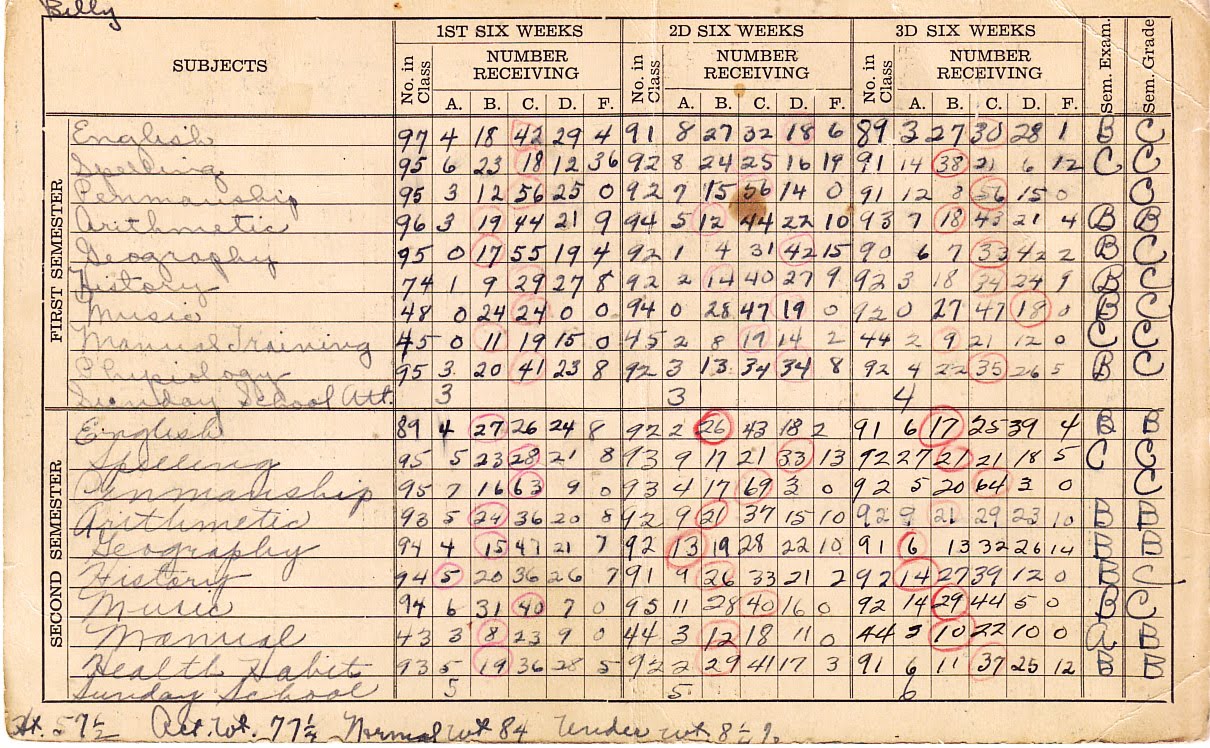 Billy
SUBJECTS 1ST SIX WEEKS 2D SIX WEEKS 3D SIX WEEKS Sem. Exam. Sem. Grade
No. in Class NUMBER RECEIVING No. in Class NUMBER RECEIVING No. in Class NUMBER RECEIVING
A. B. C. D. F. A. B. C. D. F. A. B. C. D. F.
FIRST SEMESTER
English 97 4 18 42 29 4 91 8 27 32 18 6 89 3 27 30 28 1 B C
Spelling 95 6 23 18 12 36 92 8 24 25 16 19 91 14 38 21 6 12 C C
Penmanship 95 3 12 56 25 0 92 7 15 56 14 0 91 12 8 56 15 0 C
Arithmetic 96 3 19 44 21 9 94 5 12 44 22 10 93 7 18 43 21 4 B B
Geography 95 0 17 55 19 4 92 1 4 31 42 15 90 6 7 33 42 2 B C
History 74 1 9 29 27 8 92 2 14 40 27 9 92 3 18 34 24 9 B C
Music 48 0 24 24 0 0 94 0 28 47 19 0 92 0 27 47 18 0 B C
Manual Training 45 0 11 19 15 0 45 2 8 19 14 2 44 2 9 21 12 0 C C
Physiology 95 3 20 41 23 8 92 3 13 34 34 8 92 4 22 35 26 5 B C
Sunday School Att. 3 3 4
SECOND SEMESTER
English 89 4 27 26 24 8 92 2 26 43 18 2 91 6 17 25 39 4 B B
Spelling 95 5 23 28 21 8 93 9 17 21 33 13 92 27 21 21 18 5 C C
Penmanship 95 7 16 63 9 0 93 4 17 69 3 0 92 5 20 64 3 0 C
Arithmetic 93 5 24 36 20 8 92 9 21 37 15 10 92 9 21 29 23 10 B B
Geography 94 4 15 47 21 7 92 13 19 28 22 10 91 6 13 32 26 14 B B
History 94 5 20 36 26 7 91 9 26 33 21 2 92 14 27 39 12 0 B C
Music 94 6 31 40 7 0 95 11 28 40 16 0 92 14 29 44 5 0 B C
Manual 43 3 8 23 9 0 44 3 12 18 11 0 44 10 22 10 0 A B
Health Habit 93 5 19 36 28 5 92 2 29 41 17 3 91 6 11 37 25 12 B B
Sunday School 5 5 6
Ht. 57½ Act. Wt. 77¼ Normal Wt 84 Under wt 8½%